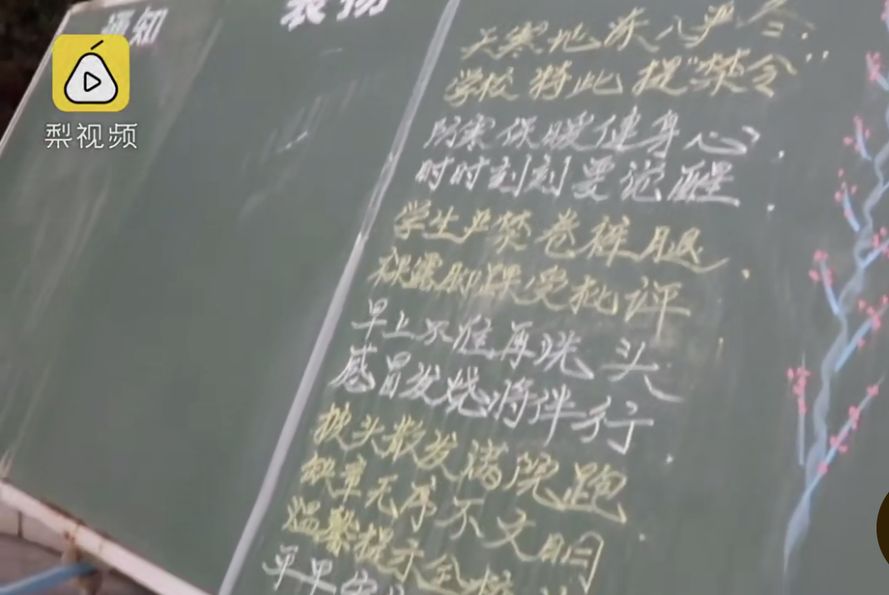 通知
表扬
梨视频
天寒地冻入严冬
学校特此提"禁令"
防寒保暖健身心,
时时刻刻要觉醒
学生严禁卷裤腿
裸露脚踝受批评
早上不准再洗头
感冒发烧将伴行
披头散发满院跑
缺章无序不文明
温馨提示全校
平平